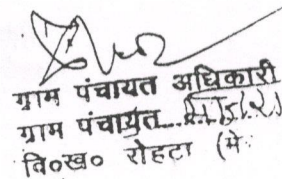 ग्राम पंचायत अधिकारी
ग्राम पंचायत..
वि०ख० रोहटा (मे